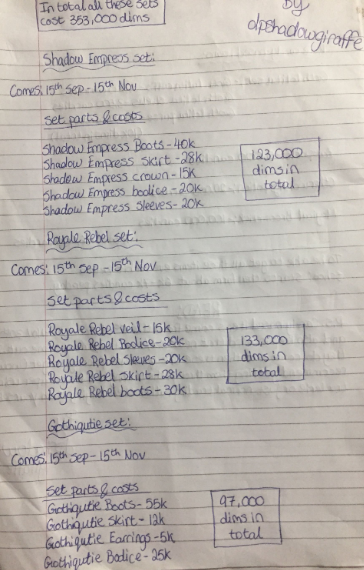 In total all these sets
cost 353,000 dims
By
olpshadowgiraffe
Shadow Empress set:
Comes: 15th Sep - 15th Nov
set parts & costs
Shadow Empress Boots - 40k
Shadow Empress Skirt - 28k
Shadow Empress crown - 15k
Shadow Empress bodice - 20k
Shadow Empress Sleeves - 20k
123,000
dims in
total
Royale Rebel set:
Comes: 15th Sep - 15th Nov
set parts & costs
Royale Rebel veil - 15k
Royale Rebel Bodice - 20k
Royale Rebel Sleeves - 20k
Royale Rebel Skirt - 28k
Royale Rebel boots - 30k
133,000
dims in
total
Gothiqutie set:
Comes: 15th Sep - 15th Nov
Set parts & costs
Gothiqutie Boots - 55k
Gothiqutie Skirt - 12k
Gothiqutie Earrings - 5k
Gothiqutie Bodice - 25k
97,000
dims in
total